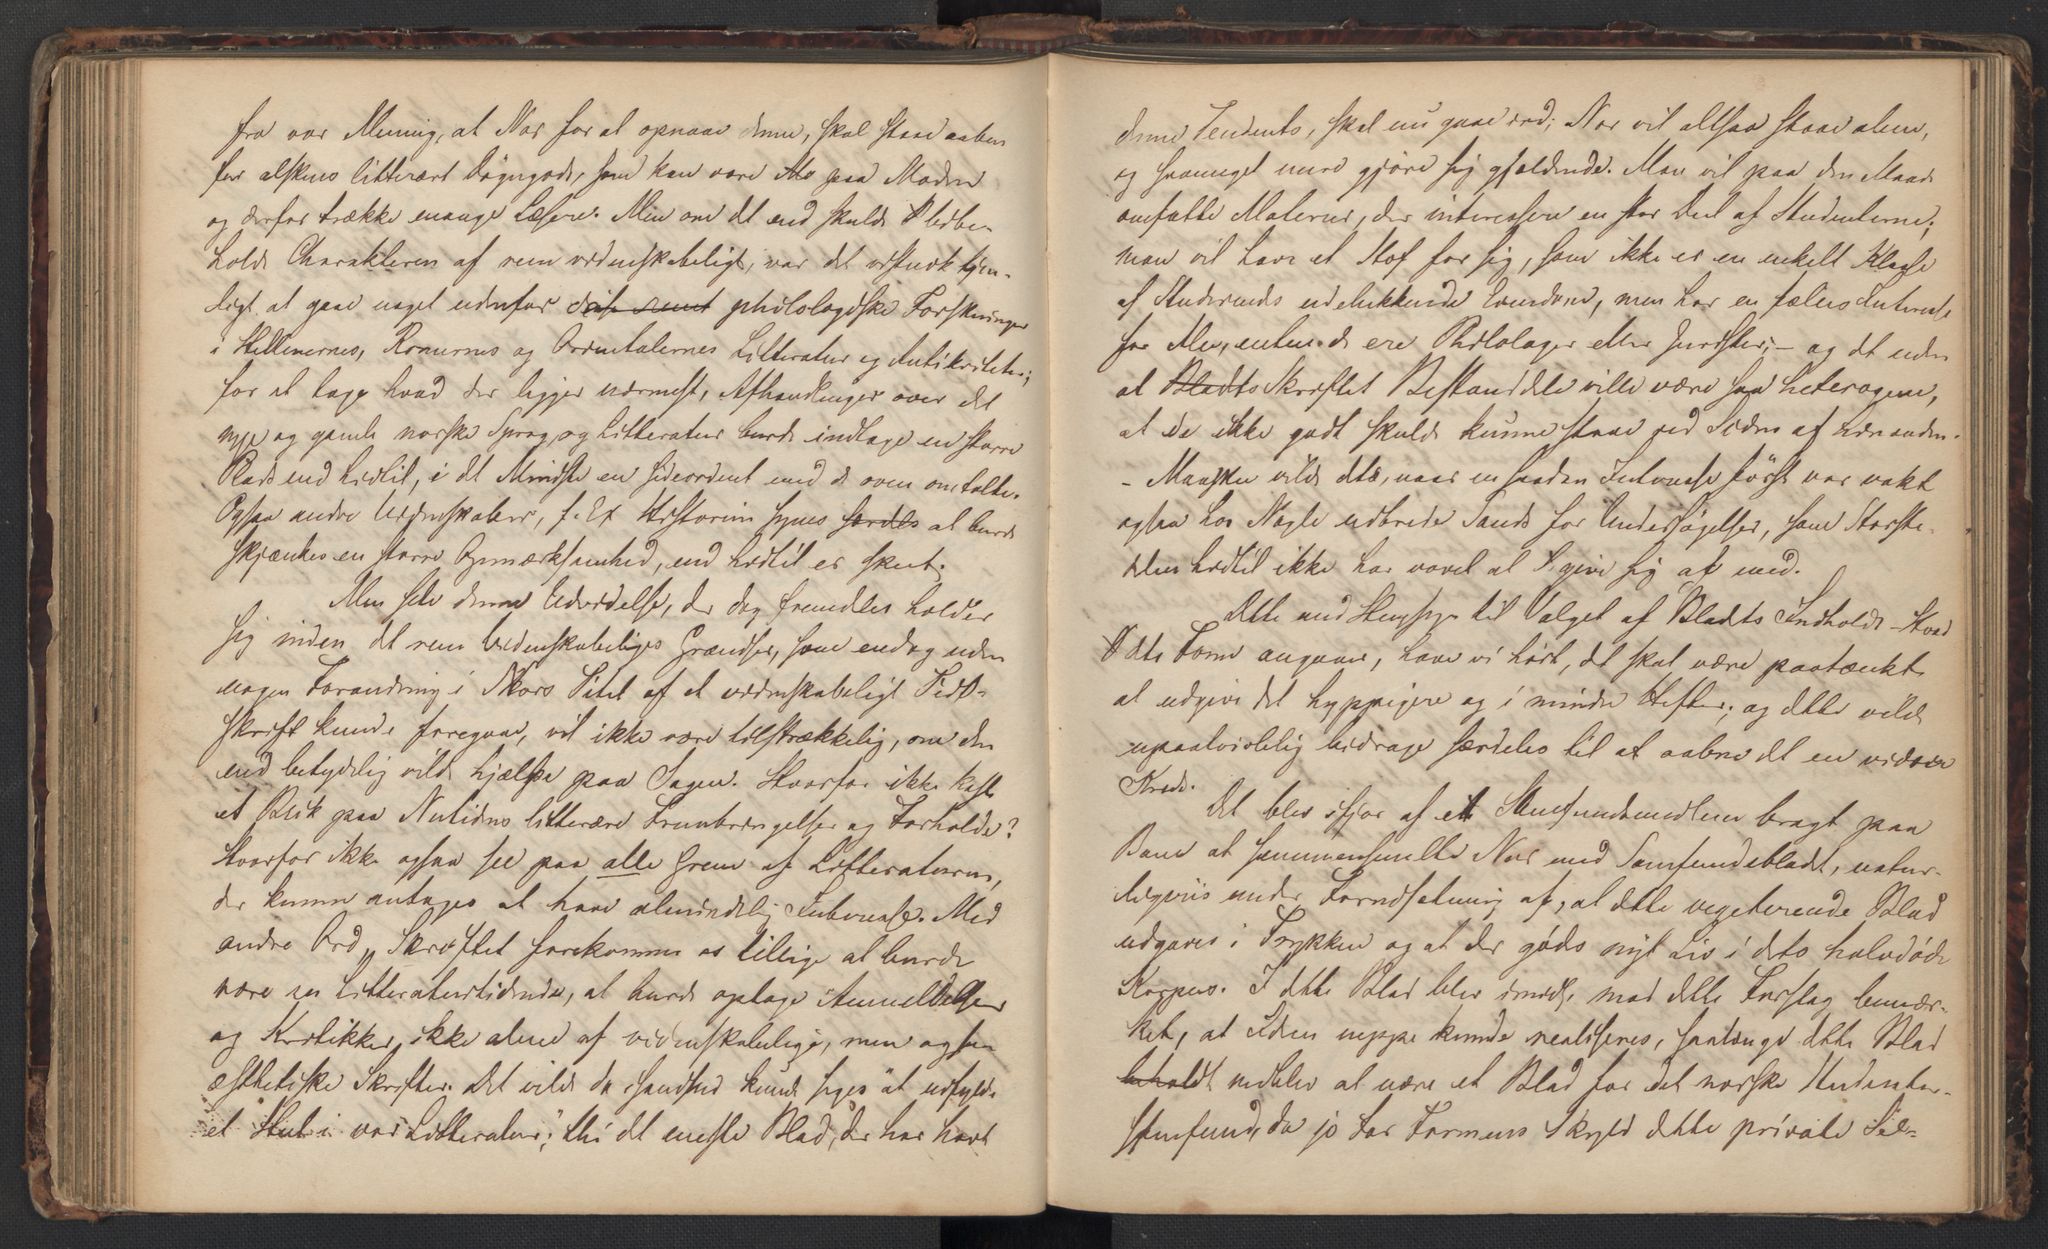 fra vor Mening, at Nor for at opnaae denne, skal staae aaben
for alskens litterært Døgngods, som kan være Mo paa Moden
og derfor trække mange Læsere. Men om det end skulde bibe-
holde Charakteren af rem videnskabeligt, var det vistnok tjen-
ligt at gaae noget udenfor philologiske Forskninger
i Hellenernes, Romernes og Orientalernes Litteratur og Antikviteter;
for at tage hvad der ligger nærmest, Afhandlinger over det
nye og gamle norske Sprog og Litteratur burde indtage en større
Plads end hidtil, i det Mindste en sideordnet med de oven omtalte.
Ogsaa andre Videnskaber, f. Ex Historien synes at burde
skjænkes en større Opmærksomhed, end hidtil er skeet.
Men selv denne Udvidelse, der dog fremdeles holder
sig inden det rene Videnskabeliges Grændser, som endog uden
nogen Forandring i Nors Titel af et videnskabeligt Tids-
skrift kunde foregaae, vil ikke være tilstrækkelig, om den
end betydelig vilde hjælpe paa Sagen. Hvorfor ikke kaste
et Blik paa Nutidens litterære Frembringelser og Forholde?
Hvorfor ikke ogsaa see paa alle Grene af Litteraturen,
der kunne antages at have almindelig Interesse. Med
andre Ord, Skriftet forekommer os tillige at burde
være en Litteraturtidende, at burde optage Anmeldelser
og Kritikker, ikke alene af videnskabelige, men ogsaa
æsthetiske Skrifter. Det vilde da isandhed kunde siges "at udfylde
et Hul i vor Litteratur;" thi det eneste Blad, der har havt
denne Tendents, skal nu gaae ind; Nor vil altsaa staae alene,
og saameget mere gjøre sig gjældende. Man vil paa den Maade
omfatte Materier, der interessere en stor Deel af Studenterne;
man vil have et Stof for sig, som ikke er en enkelt Klasse
af Studerendes udelukkende Eiendom, men har en fælles Interesse
for Alle, enten de ere Philologer eller Jurister; – og det uden
at Bladts Skriftet Bestanddele ville være saa heterogene,
at de ikke godt skulde kunne staae ved Siden af hinanden.
– Maaskee vilde det, naar en saadan Interesse først var vakt
ogsaa hos Nogle udbrede Sands for Undersøgelser, som Største-
delen hidtil ikke har vovet at give sig af med.
Dette med Hensyn til Valget af Bladts Indhold – Hvad
dets Form angaaer, have vi hørt, det skal være paatænkt
at udgive det hyppigere og i mindre Hefter; og dette vilde
upaatvivlelig bidrage særdeles til at aabne det en videre
Kreds.
Det blev ifjor af et Samfundsmedlem bragt paa
Bane at sammensmelte Nor med Samfundsbladet, natur-
ligviis under Forudsætning af, at dette vegeterende Blad
udgaves i Trykken og at der gødes nyt Liv i dets halvdøde
Korpus. I dette Blad blev imidl. mod dette Forslag bemær-
ket, at Ideen neppe kunde realiseres, saalænge dette Blad
beholdt vedblev at være et Blad for det norske Studenter-
samfund, da jo for Formens Skyld dette private Sel-